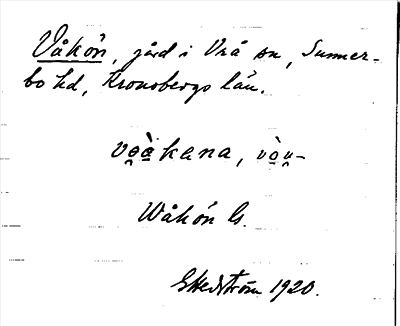 Våkön, gård i Vrå sn, Sunner-
bo hd, Kronobergs län.
vo̯àkana, vòu̯-
Wåkön Gs.
G Hedström 1920.